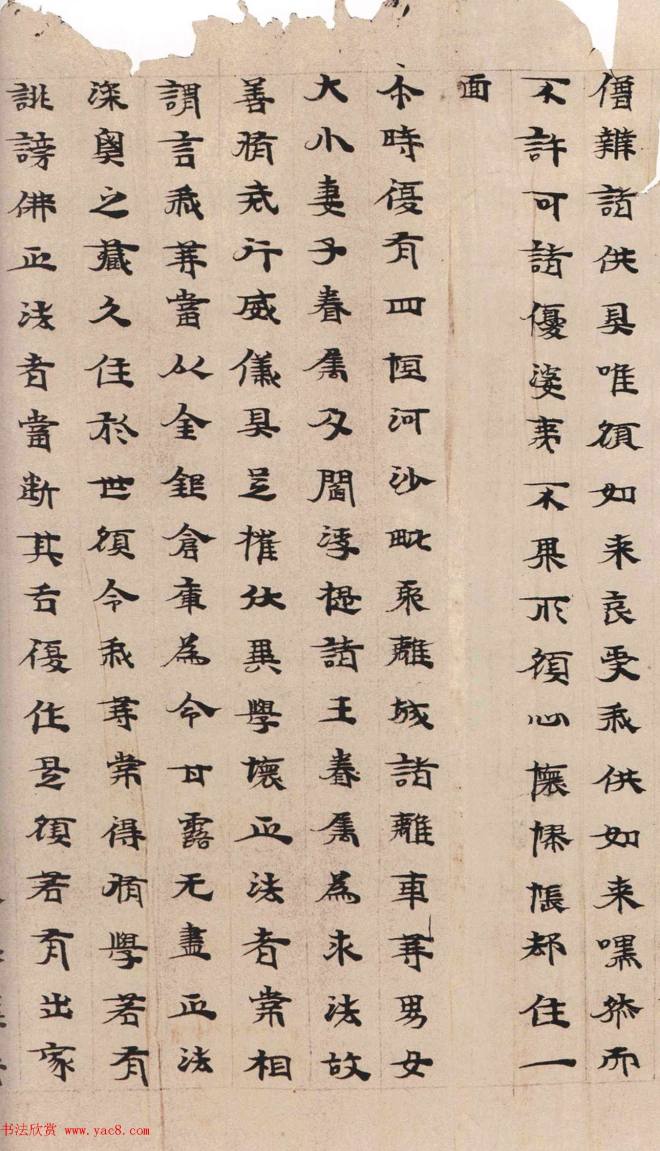 僧雜諸供具唯願如来哀受我供如来嘿然而
不許可諸優婆夷不果所願心懷愁悵却住一
面
尒時復有四恒河沙毗離城諸離車等男女
大小妻子眷属及閻浮提諸王眷属為求法故
善脩戒行威儀具足摧伏異學壞正法者常相
謂言我等當以金銀倉庫為令甘露无盡正法
深奧之藏久住於世願令我等常得脩學若有
誹謗佛正法者當断其舌復作是願若有出家
书法欣赏 www.yac8.com